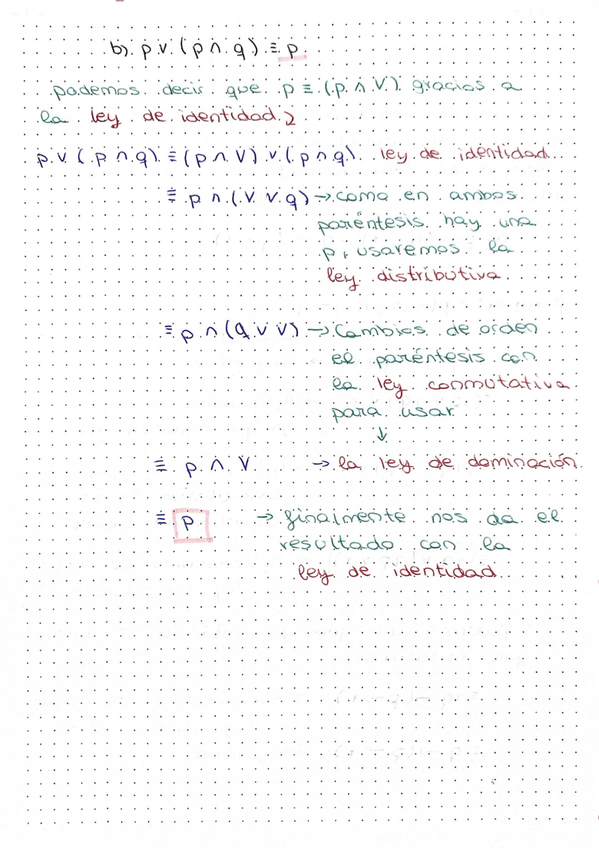 b) p v (p ∧ q) ≡ p
podemos decir que p ≡ (p ∧ V) gracias a
la ley de identidad
p v (p ∧ q) ≡ (p ∧ V) v (p ∧ q) ley de identidad
≡ p ∧ (V v q) → como en ambos
paréntesis hay una
p, usaremos la
ley distributiva
≡ p ∧ (q v V) → Cambias de orden
el paréntesis con
la ley conmutativa
para usar
↓
≡ p ∧ V → la ley de dominación
≡ p → finalmente nos da el
resultado con la
ley de identidad